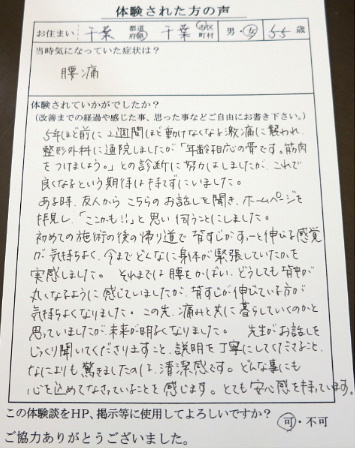 体験された方の声
お住まい 千葉 都道府県 千葉 市区町村 男・女 55歳
当時気になっていた症状は?
腰痛
体験されていかがでしたか?
(改善までの経過や感じた事、思った事などご自由にお書き下さい。)
5年ほど前に2週間ほど動けなくなる激痛に襲われ、
整形外科に通院しましたが「年齢相応の骨です。筋肉
をつけましょう。」との診断に努力はしましたが、これで
良くなるという期待は持てずにいました。
ある時、友人からこちらのお話しを聞き、ホームページを
拝見し、「ここかも!!」と思い伺うことにしました。
初めての施術の後の帰り道で背すじがすーっと伸びる感覚
が気持ちよく、今までどんなに身体が緊張していたかを
実感しました。それまでは腰をかばい、どうしても背中が
丸くなるように感じていましたが、背すじが伸びている方が
気持ちよくなりました。この先、痛みと共に暮らしていくのかと
思っていましたが、未来が明るくなりました。先生がお話しを
じっくり聞いてくださりますこと、説明を丁寧にしてくださること、
なによりも驚きましたのは、清潔感です。どんな事にも
心を込めてなさっていることを感じます。とても安心感を持っています。
この体験談をHP、掲示等に使用してよろしいですか?
可・不可
ご協力ありがとうございました。